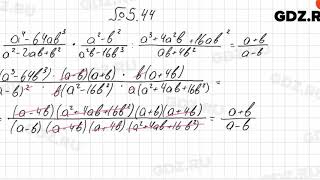 №5.44
GDZ.RU
(a⁴-64ab³)/(a²-2ab+b²) · (a²-b²)/(a²b-16b³) : (a³+4a²b+16ab²)/(ab+4b²) = (a+b)/(a-b)
(a³-64b³) · (a-b)(a+b) · b(a+4b) / (a-b)² · b(a²-16b²) · a(a²+4ab+16b²) =
= (a-4b)(a²+4ab+16b²)(a+b)(a+4b) / (a-b)(a-4b)(a+4b)(a²+4ab+16b²) = (a+b)/(a-b)
GDZ.RU